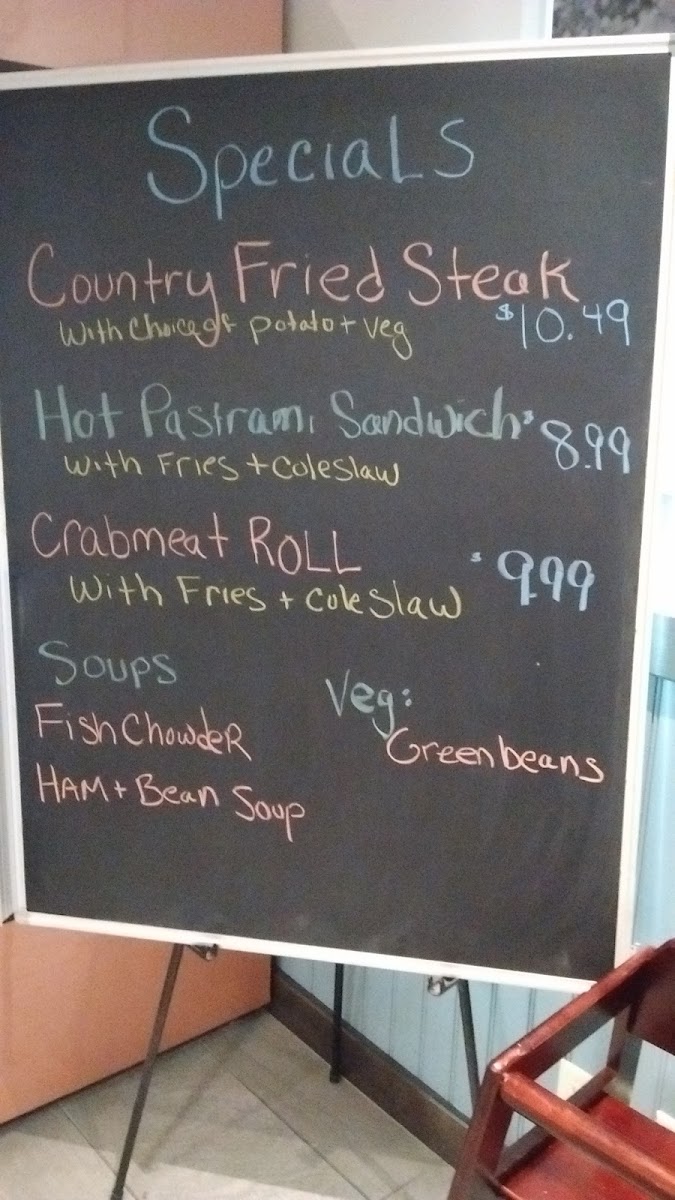 Specials
Country Fried Steak
With Choice of potato + veg $10.49
Hot Pastrami Sandwich $8.99
with Fries + coleslaw
Crabmeat ROLL $9.99
With Fries + cole slaw
Soups
Veg:
Fish Chowder
Green beans
HAM + Bean Soup